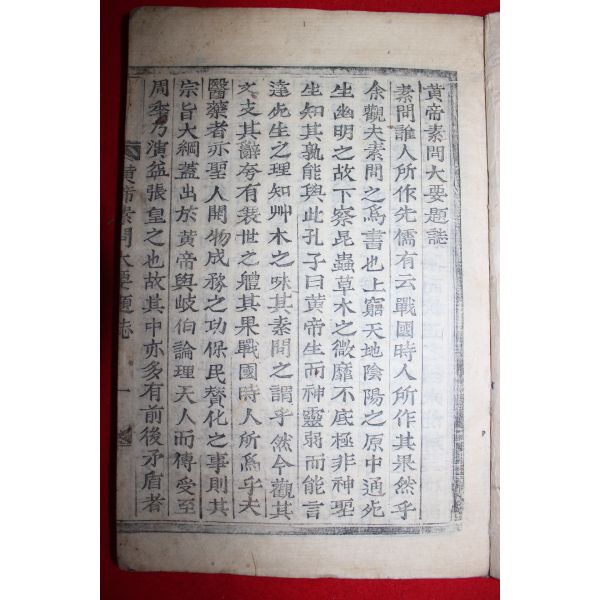 黄帝素問大要題誌
素問誰人所作先儒有云戰國時人所作其果然乎
余觀夫素問之爲書也上窮天地陰陽之原中通死
生幽明之故下察昆蟲草木之微靡不底極非神聖
生知其孰能與此孔子曰黄帝生而神靈弱而能言
達死生之理知艸木之味其素問之謂乎然今觀其
文支其辭夸有裝世之軆其果戰國時人所爲乎夫
醫藥者亦聖人開物成務之功保民贊化之事則其
宗旨大綱蓋出於黄帝與岐伯論理天人而傳受至
周季乃演益張皇之也故其中亦多有前後矛盾者
黄帝素問大要題誌 一